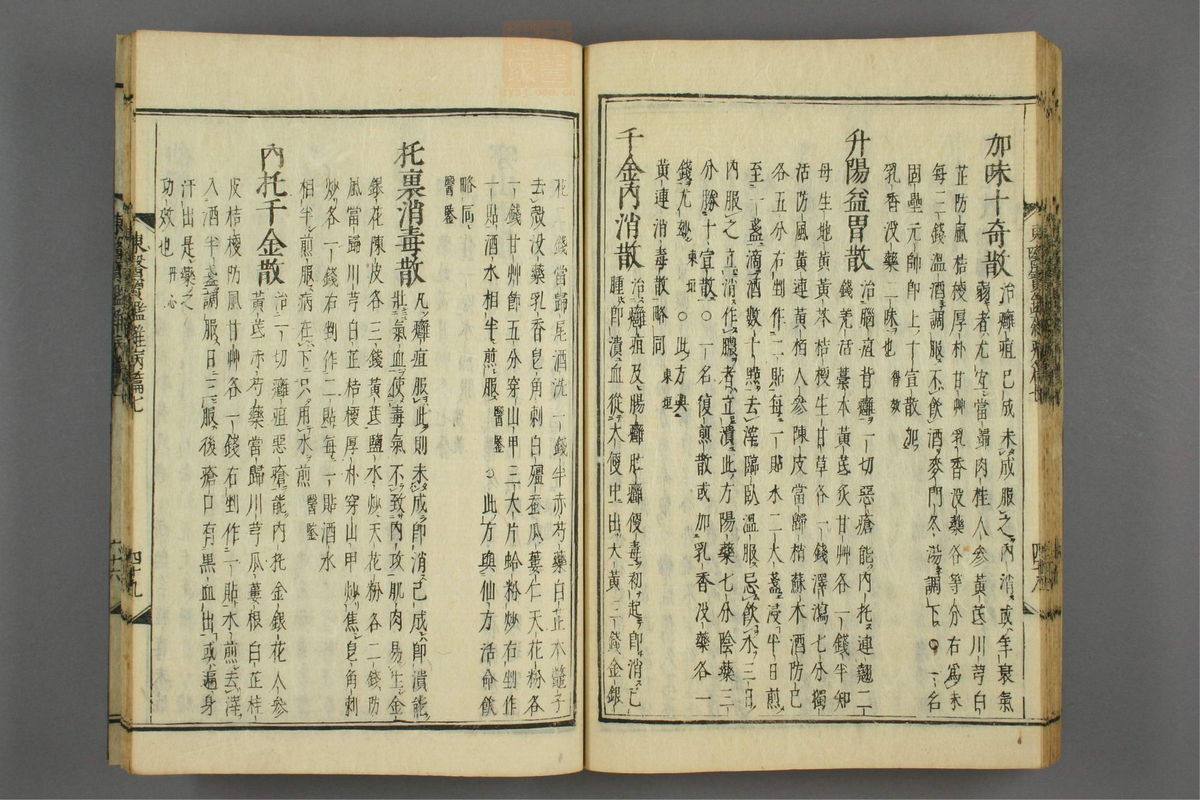 加味十奇散 治癰疽已成未成服之內消或年衰氣
弱者尤宜當歸肉桂人參黃芪川芎白
芷防風桔梗厚朴甘艸乳香沒藥各等分右爲末
每三錢溫酒調服不飮酒麥門冬湯調下○一名
固壘元帥卽上十宣散加
乳香沒藥二味也 得效
升陽益胃散 治腦疽背癰一切惡瘡能內托連翹二
錢羌活藁本黃芪炙甘艸各一錢半知
母生地黃黃芩桔梗生甘草各一錢澤瀉七分獨
活防風黃連黃栢人參陳皮當歸梢蘇木酒防己
各五分右剉作二貼每一貼水二大盞浸半日煎
至一盞滴酒數十點去滓臨臥溫服忌飮水三日
內服之立消作膿者立潰此方陽藥七分陰藥三
分勝十宣散○一名復煎散或加乳香沒藥各一
錢尤妙 東垣 ○此方與
黃連消毒散略同 東垣
千金內消散 治癰疽及腸癰肚癰便毒初起卽消已
腫卽潰血從大便中出大黃三錢金銀
花二錢當歸尾酒洗一錢半赤芍藥白芷木鱉子
去殼沒藥乳香皂角刺白殭蚕瓜蔞仁天花粉各
一錢甘艸節五分穿山甲三大片蛤粉炒右剉作
一貼酒水相半煎服 醫鑒 ○此方與仙方活命飮
略同 醫鑒
托裏消毒散 凡癰疽服此則未成卽消已成卽潰能
壯氣血使毒氣不致內攻肌肉易生金
銀花陳皮各三錢黃芪鹽水炒天花粉各二錢防
風當歸川芎白芷桔梗厚朴穿山甲炒焦皂角刺
炒各一錢右剉作二貼每一貼酒水
相半煎服病在下只用水煎 醫鑒
內托千金散 治一切癰疽惡瘡能內托金銀花人參
黃芪赤芍藥當歸川芎瓜蔞根白芷桂
皮桔梗防風甘艸各一錢右剉作一貼水煎去滓
入酒半盞調服日三服後瘡口有黑血出或遍身
汗出是藥之
功效也 丹心
東醫寶鑑雜病篇七
四十九